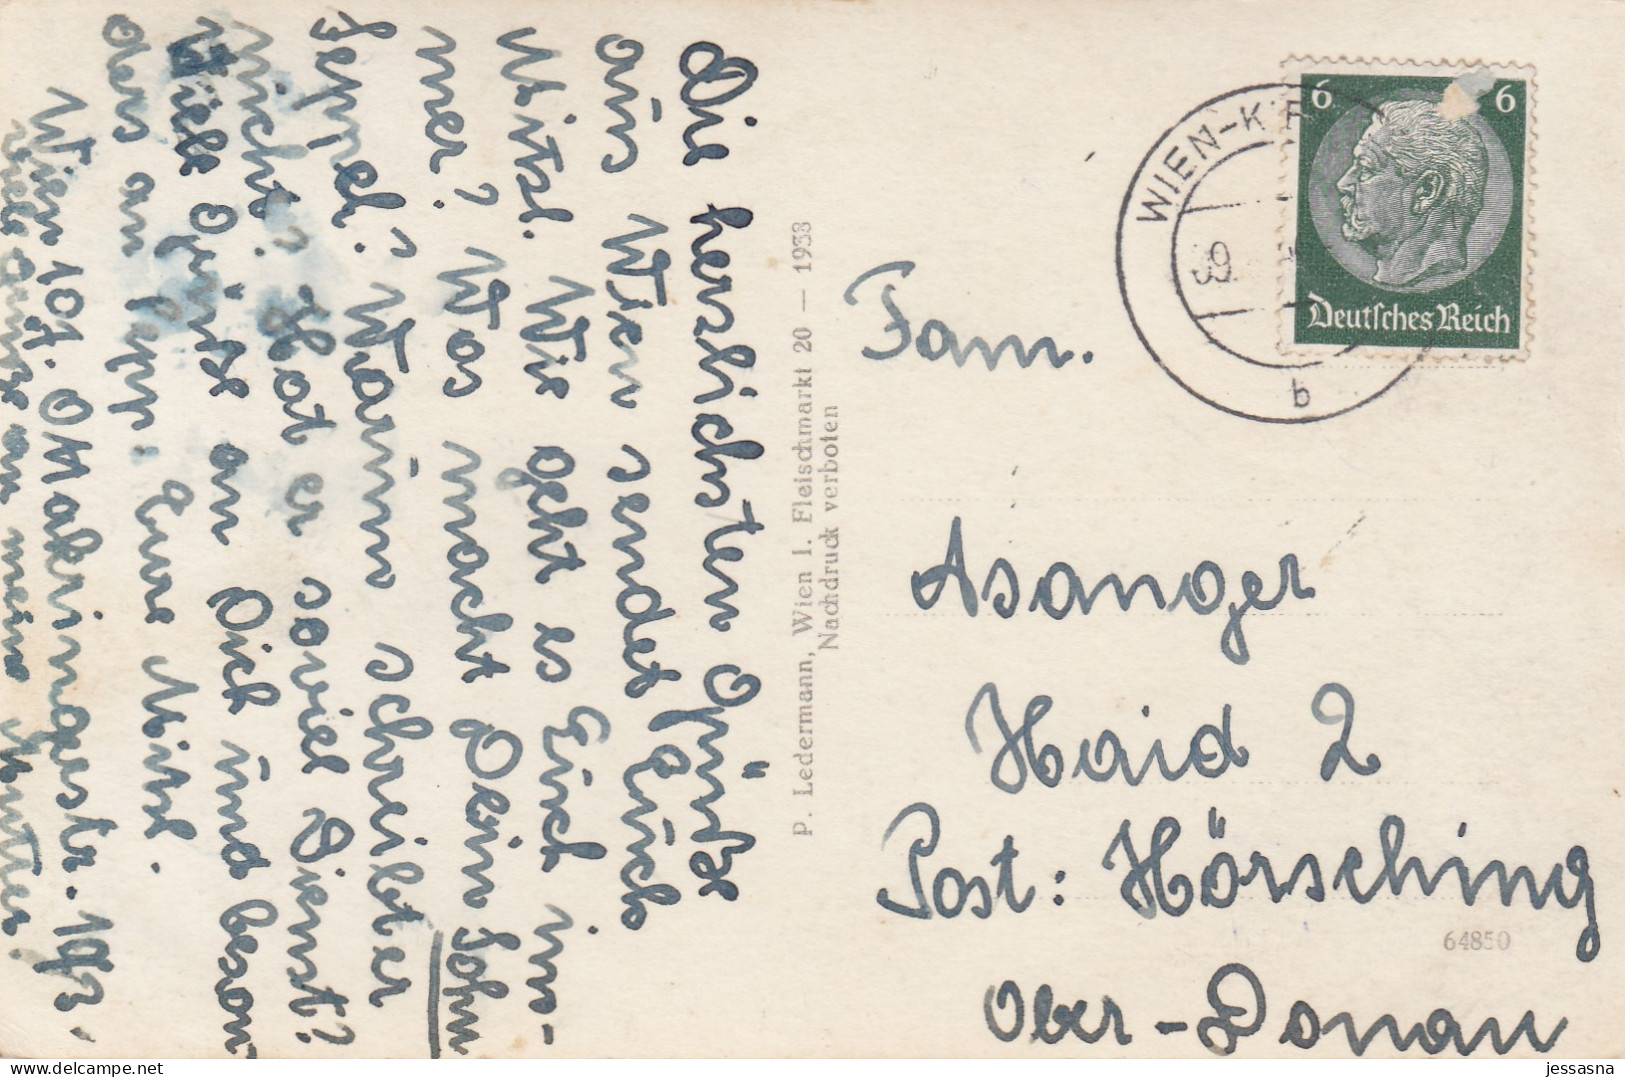 Die herzlichsten Grüße
aus Wien sendet Euch
Mitzl. Wie geht es Euch im-
mer? Was macht Dein Sohn
Seppel? Warum schreibt er
nicht? Hat er soviel Dienst?
Viele Grüße an Dich und beson-
ders an Sepp. Eure Mitzl.
Wien 107. Ottakringerstr. 193.
viele Grüße an meine Mutter!
P. Ledermann, Wien I. Fleischmarkt 20 — 1938
Nachdruck verboten
WIEN-K
39.
b
6 6
Deutsches Reich
Fam.
Asanger
Haid 2
Post: Hörsching
64850
Ober-Donau
jessasna